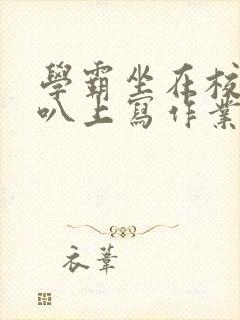 學霸坐在校
叭上寫作業
衣葦